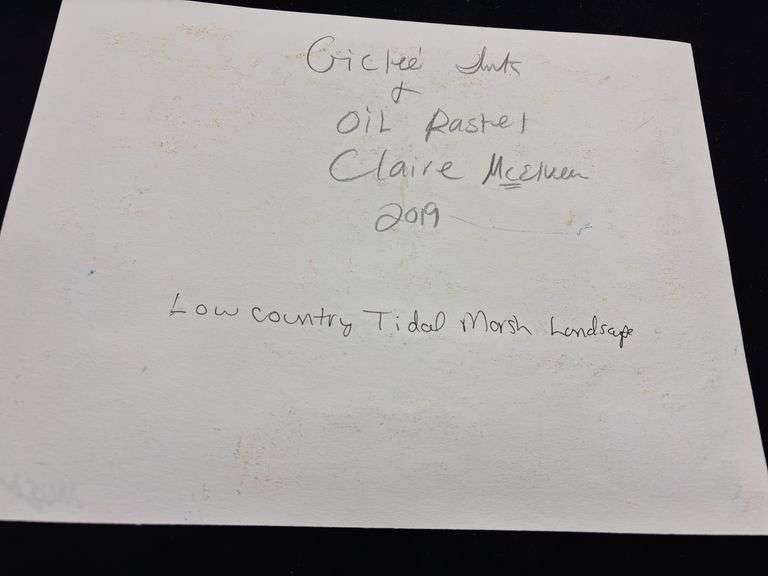 Giclée Ink
&
OIL Pastel
Claire McElveen
2019
Low country Tidal Marsh Landscape